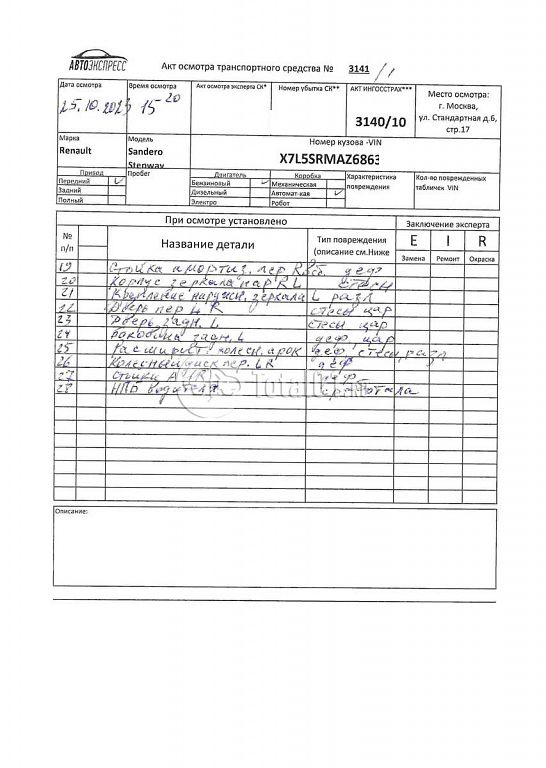 АВТОЭКСПРЕСС
Акт осмотра транспортного средства № 3141/1
Дата осмотра
25.10.2023
Время осмотра
15 20
Акт осмотра эксперта СК*
Номер убытка СК**
АКТ ИНГОССТРАХ***
3140/10
Место осмотра:
г. Москва,
ул. Стандартная д.6,
стр.17
Марка
Renault
Модель
Sandero
Stepway
Номер кузова -VIN
X7L5SRMAZ6863
Привод
Передний
Задний
Полный
Пробег
Двигатель
Бензиновый
Дизельный
Электро
Коробка
Механическая
Автомат-кая
Робот
Характеристика
повреждения
Кол-во поврежденных
табличек VIN
При осмотре установлено
Заключение эксперта
№
п/п
Название детали
Тип повреждения
(описание см.Ниже
E I R
Замена Ремонт Окраска
19 Стойка амортиз. пер R деф
20 Корпус зеркала нар R L
21 Крепление наружн. зеркала L разл
22 Дверь пер L R стесы цар
23 Дверь задн. L стесы цар
24 Боковина задн. L деф цар
25 Расширит. колесн. арок деф, стесы, разл
26 Колесный диск пер. LR деф
27 Стойки A деф
28 НПБ водителя сработала
Описание: